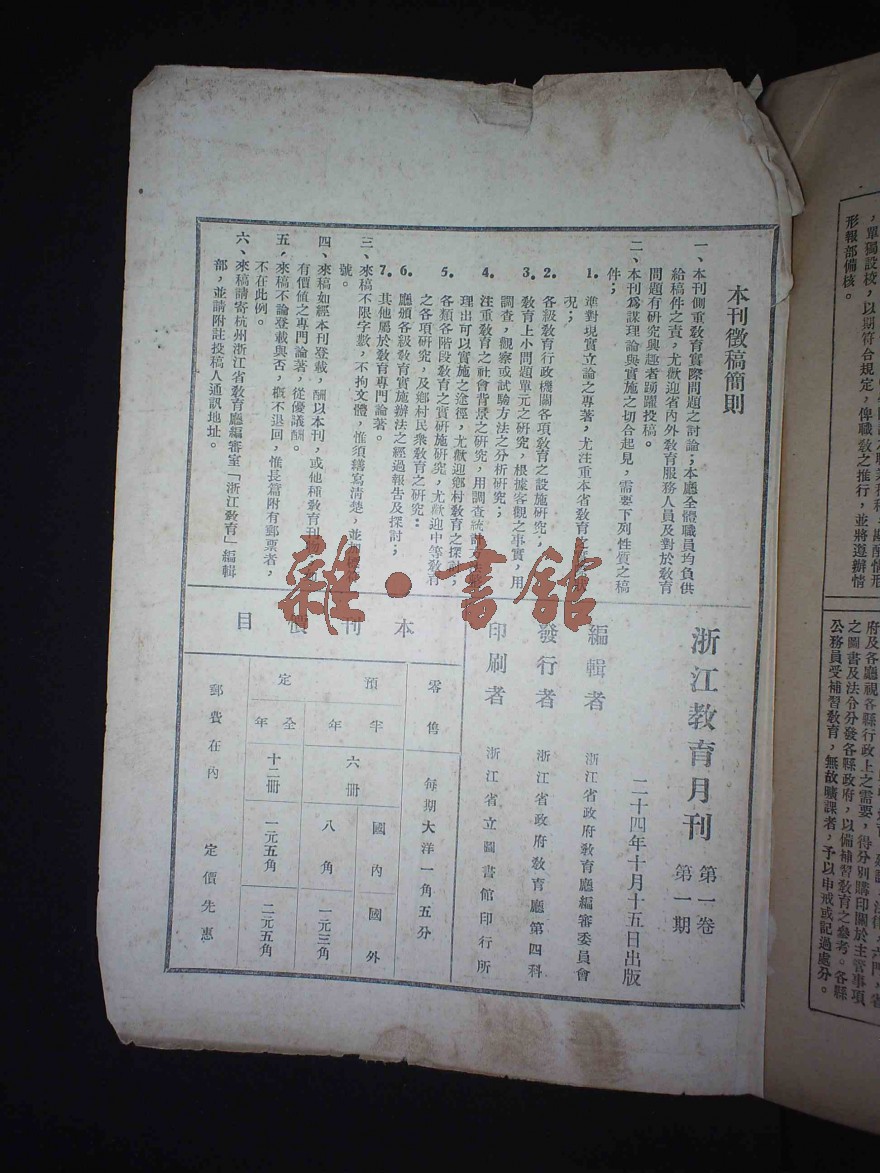 本刊徵稿簡則
一、本刊側重敎育實際問題之討論;本廳全體職員均負供
給稿件之責,尤歡迎省內外敎育服務人員及對於敎育
問題有硏究興趣者踴躍投稿。
二、本刊爲謀理論與實施之切合起見,需要下列性質之稿
件;
1.準對現實立論之專著,尤注重本省敎育
況;
2.各級敎育行政機關各項敎育之設施硏究;
3.敎育上小問題單元之硏究,根據客觀之事實,用
調查,觀察或試驗方法之分析硏究;
4.注重敎育之社會背景之硏究,用調查統
理出可以實施之途徑,尤歡迎鄉村敎育之探討;
5.各類各階段敎育之實施硏究,尤歡迎中等敎育
之各項硏究,及鄉村民衆敎育之硏究:
6.廳頒各級敎育實施辦法之經過報告及探討;
7.其他屬於敎育專門論著。
三、來稿不限字數,不拘文體,惟須繕寫淸楚,並加
號。
四、來稿如經本刊登載,酬以本刊,或他種敎育刊物
有價値之專門論著,從優議酬。
五、來稿不論登載與否,槪不退回,惟長篇附有郵票者,
不在此例。
六、來稿請寄杭州浙江省敎育廳編審室「浙江敎育」編輯
部,並請附註投稿人通訊地址。
浙江敎育月刊
第一卷
第一期
二十四年十月十五日出版
編輯者 浙江省政府敎育廳編審委員會
發行者 浙江省政府敎育廳第四科
印刷者 浙江省立圖書館印行所
本刊價目
零售 每期大洋一角五分
預定
半年 六冊 國內 八角 國外 一元三角
全年 十二冊 一元五角 二元五角
郵費在內 定價先惠
雜·書館
,單獨設校,以期符合規定,俾職敎之推行,並將遵辦情
形報部備核。
府及各廳視各縣行政上之需要,得分別購印關於主管事項
之圖書及法令分發各縣政府,以備補習敎育之參考。各縣
公務員受補習敎育,無故曠課者,予以申戒或記過處分。